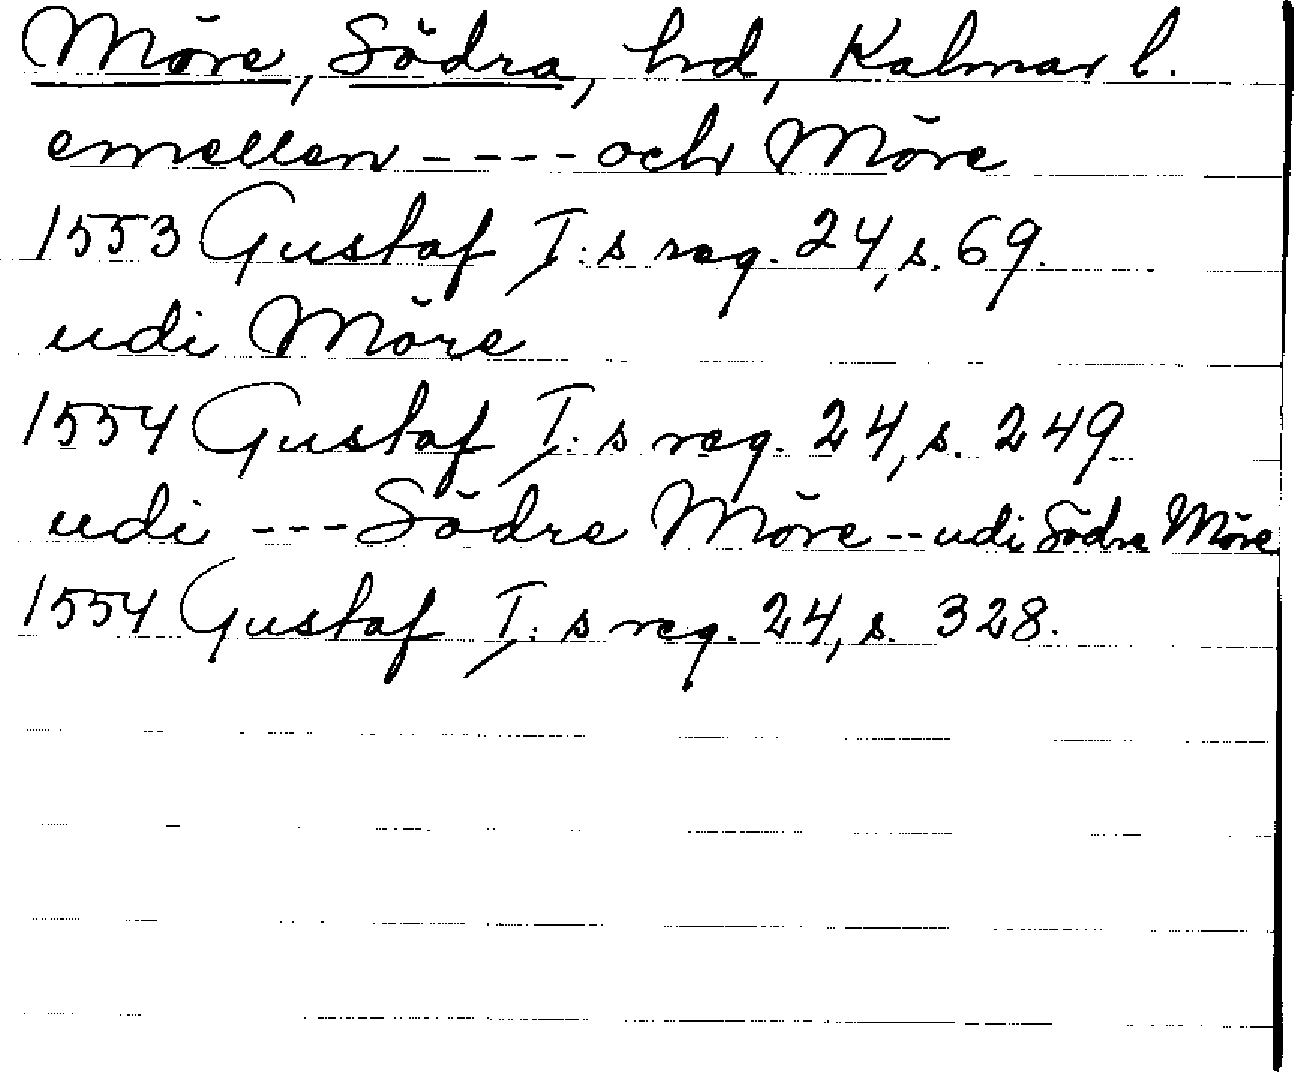 Möre, Södra, hrd, Kalmar l.
emellen ---- och Möre
1553 Gustaf I:s reg. 24, s. 69.
udi Möre
1554 Gustaf I:s reg. 24, s. 249
udi --- Södre Möre -- udi Södre Möre
1554 Gustaf I:s reg. 24, s. 328.